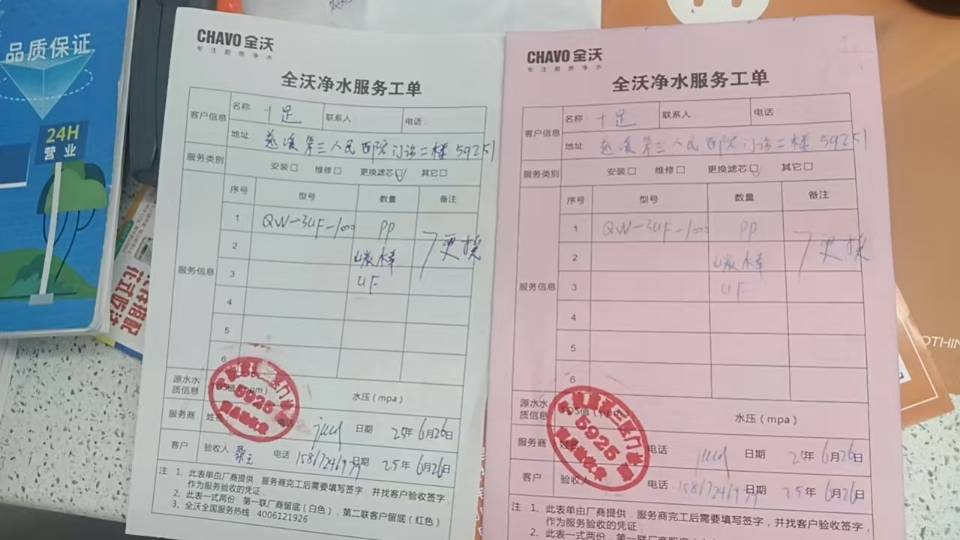 品质保证
24H
营业
CHAVO 全沃
专注厨房净水
全沃净水服务工单
客户信息 名称 十足 联系人 电话
地址 慈溪第三人民医院门诊二楼 59251
服务类别 安装□ 维修□ 更换滤芯☑ 其它□
服务信息
序号 型号 数量 备注
1 QW-3UF-100 PP
2 碳棒 更换
3 UF
4
5
6
源水水质信息 水压（mpa）
服务商 日期 25年6月26日
客户 验收人 电话 日期 25年6月26日
5925
注 1、此表单由厂商提供，服务商完工后需要填写签字，并找客户验收签字，
作为服务验收的凭证
2、此表一式两份，第一联厂商留底（白色），第二联客户留底（红色）
3、全沃全国服务热线 4006121926
CHAVO 全沃
专注厨房净水
全沃净水服务工单
客户信息 名称 十足 联系人 电话
地址 慈溪第三人民医院门诊二楼 59251
服务类别 安装□ 维修□ 更换滤芯☑ 其它□
服务信息
序号 型号 数量 备注
1 QW-3UF-100 PP
2 碳棒 更换
3 UF
4
5
6
源水水质信息 水压（mpa）
服务商 电话 日期 25年6月26日
客户 验收人 电话 日期 25年6月26日
5925
注 1、此表单由厂商提供，服务商完工后需要填写签字，并找客户验收签字，
作为服务验收的凭证
OTHIN